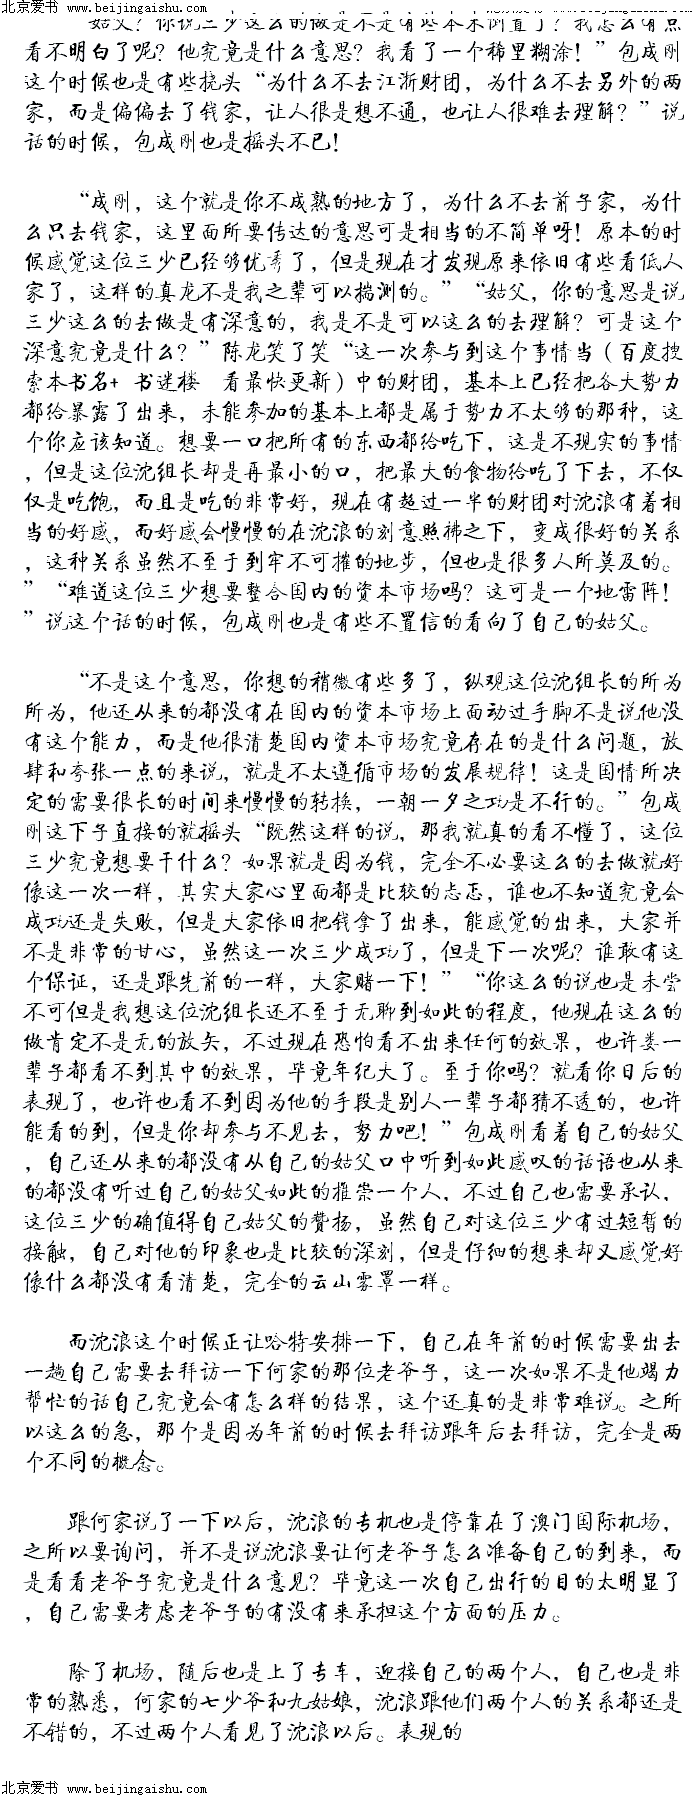 北京爱书 www.beijingaishu.com
“姑父？你说三少这么的做是不是有些本末倒置了？我怎么有点
看不明白了呢？他究竟是什么意思？我看了一个稀里糊涂！”包成刚
这个时候也是有些挠头“为什么不去江浙财团，为什么不去另外的两
家，而是偏偏去了钱家，让人很是想不通，也让人很难去理解？”说
话的时候，包成刚也是摇头不已！
“成刚，这个就是你不成熟的地方了，为什么不去前子家，为什
么只去钱家，这里面所要传达的意思可是相当的不简单呀！原本的时
候感觉这位三少已经够优秀了，但是现在才发现原来依旧有些看低人
家了，这样的真龙不是我之辈可以揣测的。”“姑父，你的意思是说
三少这么的去做是有深意的，我是不是可以这么的去理解？可是这个
深意究竟是什么？”陈龙笑了笑“这一次参与到这个事情当（百度搜
索本书名+ 书迷楼 看最快更新）中的财团，基本上已经把各大势力
都给暴露了出来，未能参加的基本上都是属于势力不太够的那种，这
个你应该知道。想要一口把所有的东西都给吃下，这是不现实的事情
，但是这位沈组长却是再最小的口，把最大的食物给吃了下去，不仅
仅是吃饱，而且是吃的非常好，现在有超过一半的财团对沈浪有着相
当的好感，而好感会慢慢的在沈浪的刻意照拂之下，变成很好的关系
，这种关系虽然不至于到牢不可摧的地步，但也是很多人所莫及的。
”“难道这位三少想要整合国内的资本市场吗？这可是一个地雷阵！
”说这个话的时候，包成刚也是有些不置信的看向了自己的姑父。
“不是这个意思，你想的稍微有些多了，纵观这位沈组长的所为
所为，他还从来的都没有在国内的资本市场上面动过手脚不是说他没
有这个能力，而是他很清楚国内资本市场究竟存在的是什么问题，放
肆和夸张一点的来说，就是不太遵循市场的发展规律！这是国情所决
定的需要很长的时间来慢慢的转换，一朝一夕之功是不行的。”包成
刚这下子直接的就摇头“既然这样的说，那我就真的看不懂了，这位
三少究竟想要干什么？如果就是因为钱，完全不必要这么的去做就好
像这一次一样，其实大家心里面都是比较的忐忑，谁也不知道究竟会
成功还是失败，但是大家依旧把钱拿了出来，能感觉的出来，大家并
不是非常的甘心，虽然这一次三少成功了，但是下一次呢？谁敢有这
个保证，还是跟先前的一样，大家赌一下！”“你这么的说也是未尝
不可但是我想这位沈组长还不至于无聊到如此的程度，他现在这么的
做肯定不是无的放矢，不过现在恐怕看不出来任何的效果，也许娄一
辈子都看不到其中的效果，毕竟年纪大了。至于你吗？就看你日后的
表现了，也许也看不到因为他的手段是别人一辈子都猜不透的，也许
能看的到，但是你却参与不见去，努力吧！”包成刚看着自己的姑父
，自己还从来的都没有从自己的姑父口中听到如此感叹的话语也从来
的都没有听过自己的姑父如此的推崇一个人，不过自己也需要承认，
这位三少的确值得自己姑父的赞扬，虽然自己对这位三少有过短暂的
接触，自己对他的印象也是比较的深刻，但是仔细的想来却又感觉好
像什么都没有看清楚，完全的云山雾罩一样。
而沈浪这个时候正让哈特安排一下，自己在年前的时候需要出去
一趟自己需要去拜访一下何家的那位老爷子，这一次如果不是他竭力
帮忙的话自己究竟会有怎么样的结果，这个还真的是非常难说。之所
以这么的急，那个是因为年前的时候去拜访跟年后去拜访，完全是两
个不同的概念。
跟何家说了一下以后，沈浪的专机也是停靠在了澳门国际机场，
之所以要询问，并不是说沈浪要让何老爷子怎么准备自己的到来，而
是看看老爷子究竟是什么意见？毕竟这一次自己出行的目的太明显了
，自己需要考虑老爷子的有没有来承担这个方面的压力。
除了机场，随后也是上了专车，迎接自己的两个人，自己也是非
常的熟悉，何家的七少爷和九姑娘，沈浪跟他们两个人的关系都还是
不错的，不过两个人看见了沈浪以后。表现的
北京爱书 www.beijingaishu.com